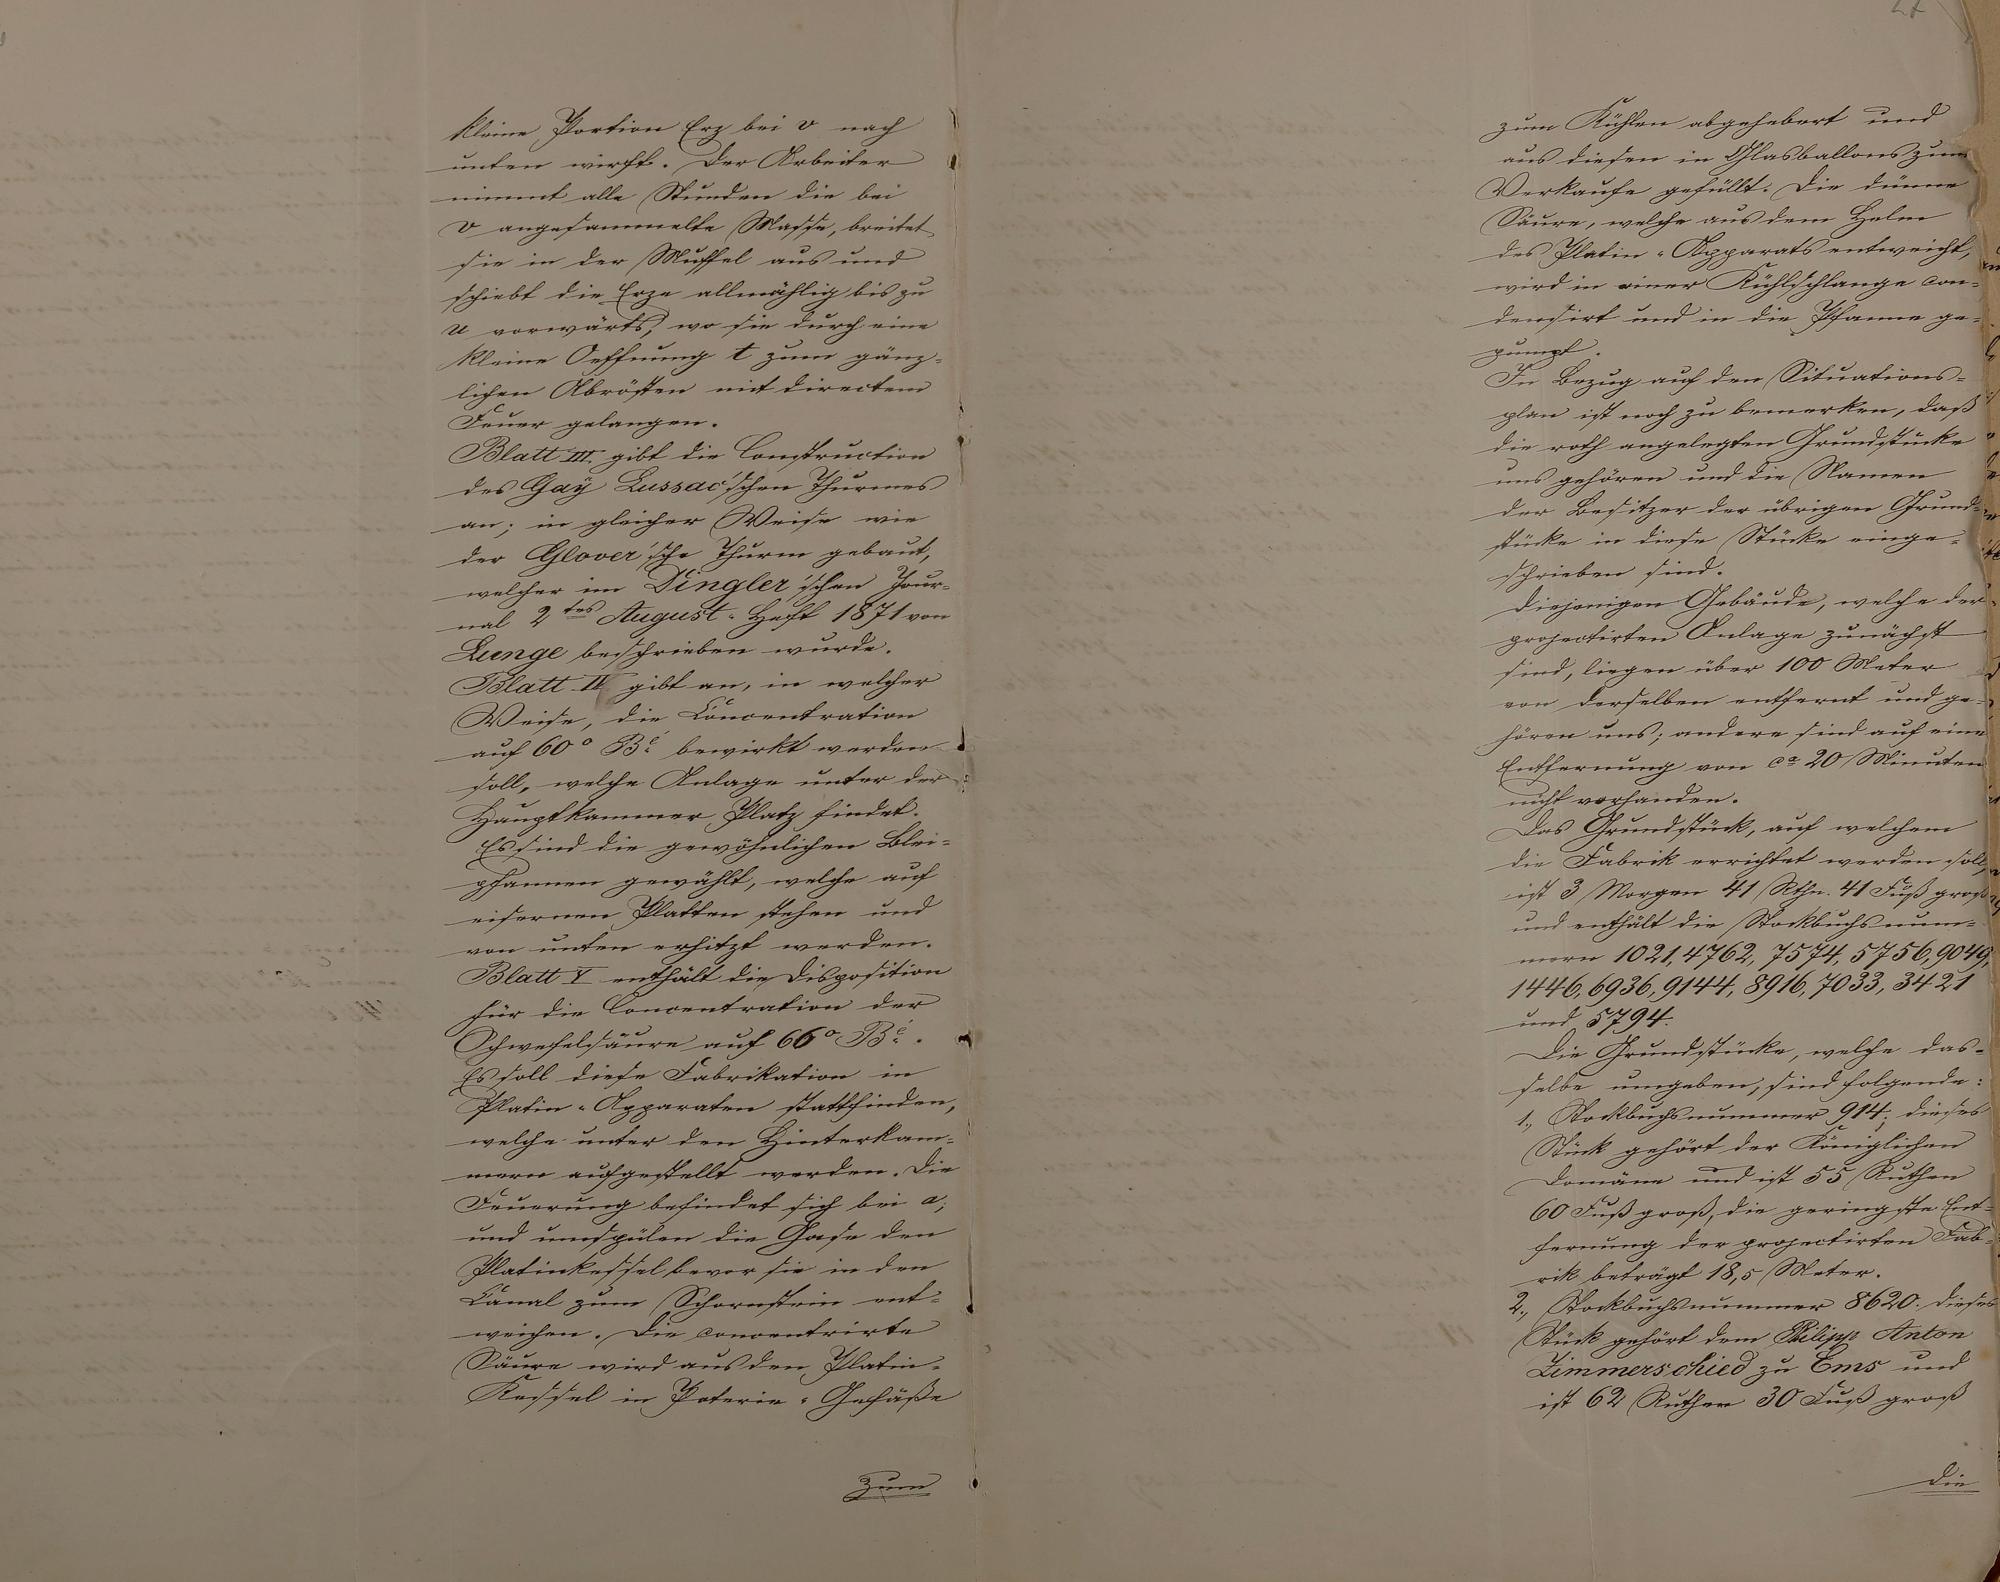 kleine Portion Erz bei v nach
unten wirft. Der Arbeiter
nimmt alle Stunden die bei
v angesammelte Masse, breitet
sie in der Muffel aus und
schiebt die Erze allmählig bis zu
u vorwärts, wo sie durch eine
kleine Oeffnung t zum gänz-
lichen Abrösten mit directem
Feuer gelangen.
Blatt III. gibt die Construction
des Gaÿ Lussac'schen Thurmes
an; in gleicher Weise wie
der Glover'sche Thurm gebaut,
welcher im Dingler'schen Jour-
nal 2tes August-Heft 1871 von
Lunge beschrieben wurde.
Blatt IV gibt an, in welcher
Weise, die Concentration
auf 60° Bé bewirkt werden
soll, welche Anlage unter der
Hauptkammer Platz findet.
Es sind die gewöhnlichen Blei-
pfannen gewählt, welche auf
eisernen Platten stehen und
von unten erhitzt werden.
Blatt V enthält die Disposition
für die Concentration der
Schwefelsäure auf 66° Bé.
Es soll diese Fabrikation in
Platin-Apparaten stattfinden,
welche unter den Hinterkam-
mern aufgestellt werden. Die
Feuerung befindet sich bei a;
und umspülen die Gase den
Platinkessel bevor sie in den
Canal zum Schornstein ent-
weichen. Die concentrirte
Säure wird aus den Platin-
Kessel in Poterie-Gefäße
zum
27
zum Kühlen abgehebert und
aus diesen in Glasballons zum
Verkaufe gefüllt. Die dünne
Säure, welche aus dem Helm
des Platin-Apparats entweicht,
wird in einer Kühlschlange con-
densirt und in die Pfanne ge-
pumpt.
In Bezug auf den Situations-
plan ist noch zu bemerken, daß
die roth angelegten Grundstücke
uns gehören und die Namen
der Besitzer der übrigen Grund-
stücke in diese Stücke einge-
schrieben sind.
Diejenigen Gebäude, welche der
projectirten Anlage zunächst
sind, liegen über 100 Meter
von derselben entfernt und ge-
hören uns; andere sind auf eine
Entfernung von ca 20 Minuten
nicht vorhanden.
Das Grundstück, auf welchem
die Fabrik errichtet werden soll,
ist 3 Morgen 41 Rthn. 41 Fuß groß
und enthält die Stockbuchsnum-
mern 1021, 4762, 7574, 5756, 9049,
1446, 6936, 9144, 8916, 7033, 3421
und 5794.
Die Grundstücke, welche das-
selbe umgeben, sind folgende:
1., Stockbuchsnummer 914; dieses
Stück gehört der Königlichen
Domäne und ist 55 Ruthen
60 Fuß groß, die geringste Ent-
fernung der projectirten Fab-
rik beträgt 18,5 Meter.
2., Stockbuchsnummer 8620. dieses
Stück gehört dem Philipp Anton
Zimmerschied zu Ems und
ist 62 Ruthen 30 Fuß groß
die